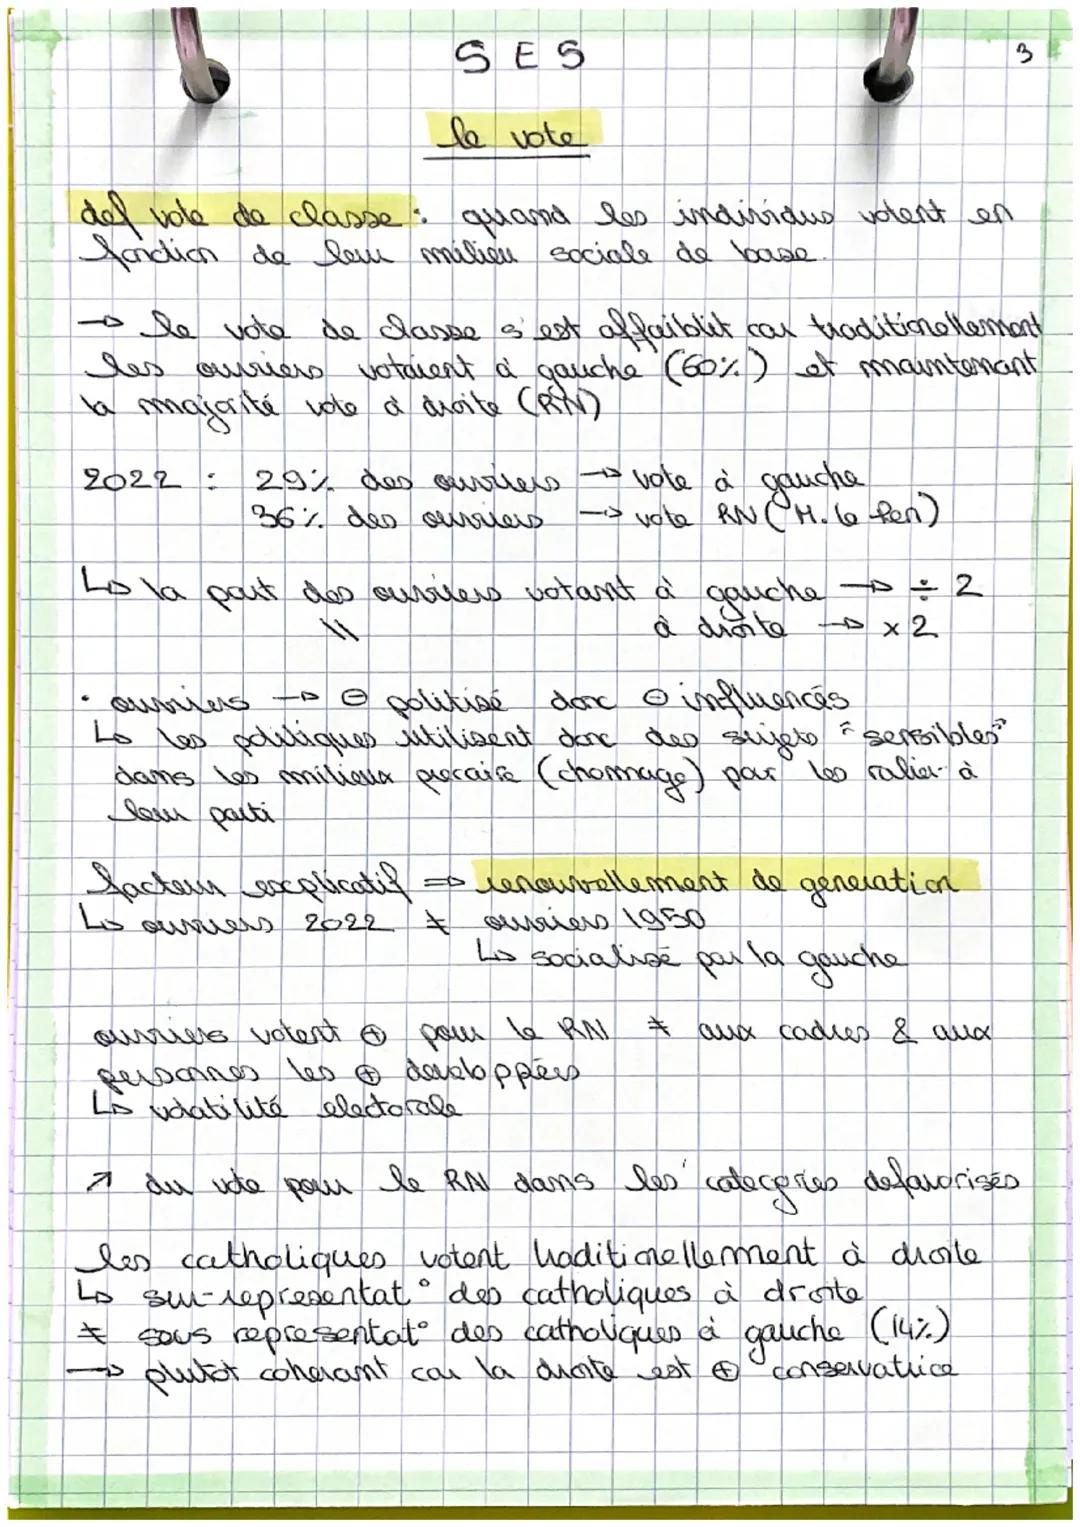 SES
3
le vote
def vote de classe : quand les individus votent en
fonction de leur milieu sociale de base.
→ le vote de classe s'est affaiblit car traditionellement
les ouvriers votaient à gauche (60%) et maintenant
la majorité vote à droite (RN)
2022 : 29% des ouvriers → vote à gauche
36% des ouvriers → vote RN (M. le Pen)
↳ la part des ouvriers votant à gauche → ÷ 2
\\ à droite → x 2
• ouvriers → ⊖ politisé donc ⊖ influencés
↳ les politiques utilisent donc des sujets "sensibles"
dans les milieux precaire (chomage) pour les ralier à
leur parti
facteur explicatif ⇒ renouvellement de generation
↳ ouvriers 2022 ≠ ouvriers 1950
↳ socialisé par la gauche
ouvriers votent ⊕ pour le RN ≠ aux cadres & aux
personnes les ⊕ developpées
↳ volatilité electorale
↗ du vote pour le RN dans les categories defavorisés
les catholiques votent traditionellement à droite
↳ sur-representat° des catholiques à droite
≠ sous representat° des catholiques à gauche (14%)
→ plutôt coherant car la droite est ⊕ conservatrice